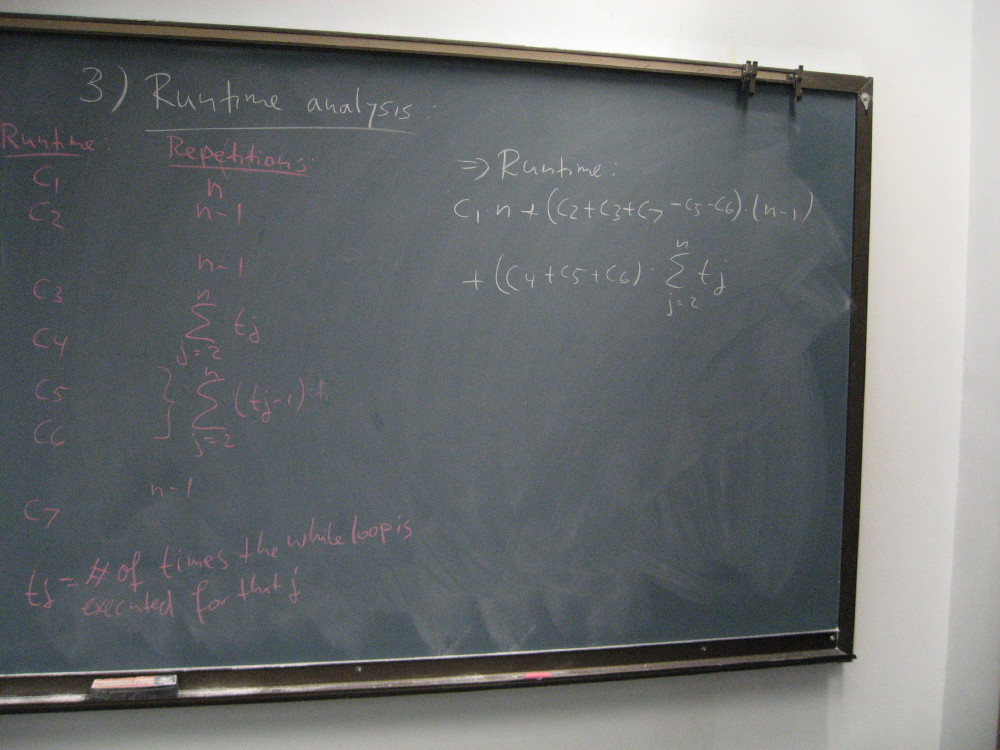 3) Runtime analysis:
Runtime: Repetitions:
C1 n
C2 n-1
n-1
C3
C4 n∑j=2 tj
C5
C6 } n∑j=2 (tj-1)
n-1
C7
tj = # of times the while loop is
executed for that j
=> Runtime:
C1·n + (C2+C3+C7-C5-C6)·(n-1)
+ (C4+C5+C6)· n∑j=2 tj